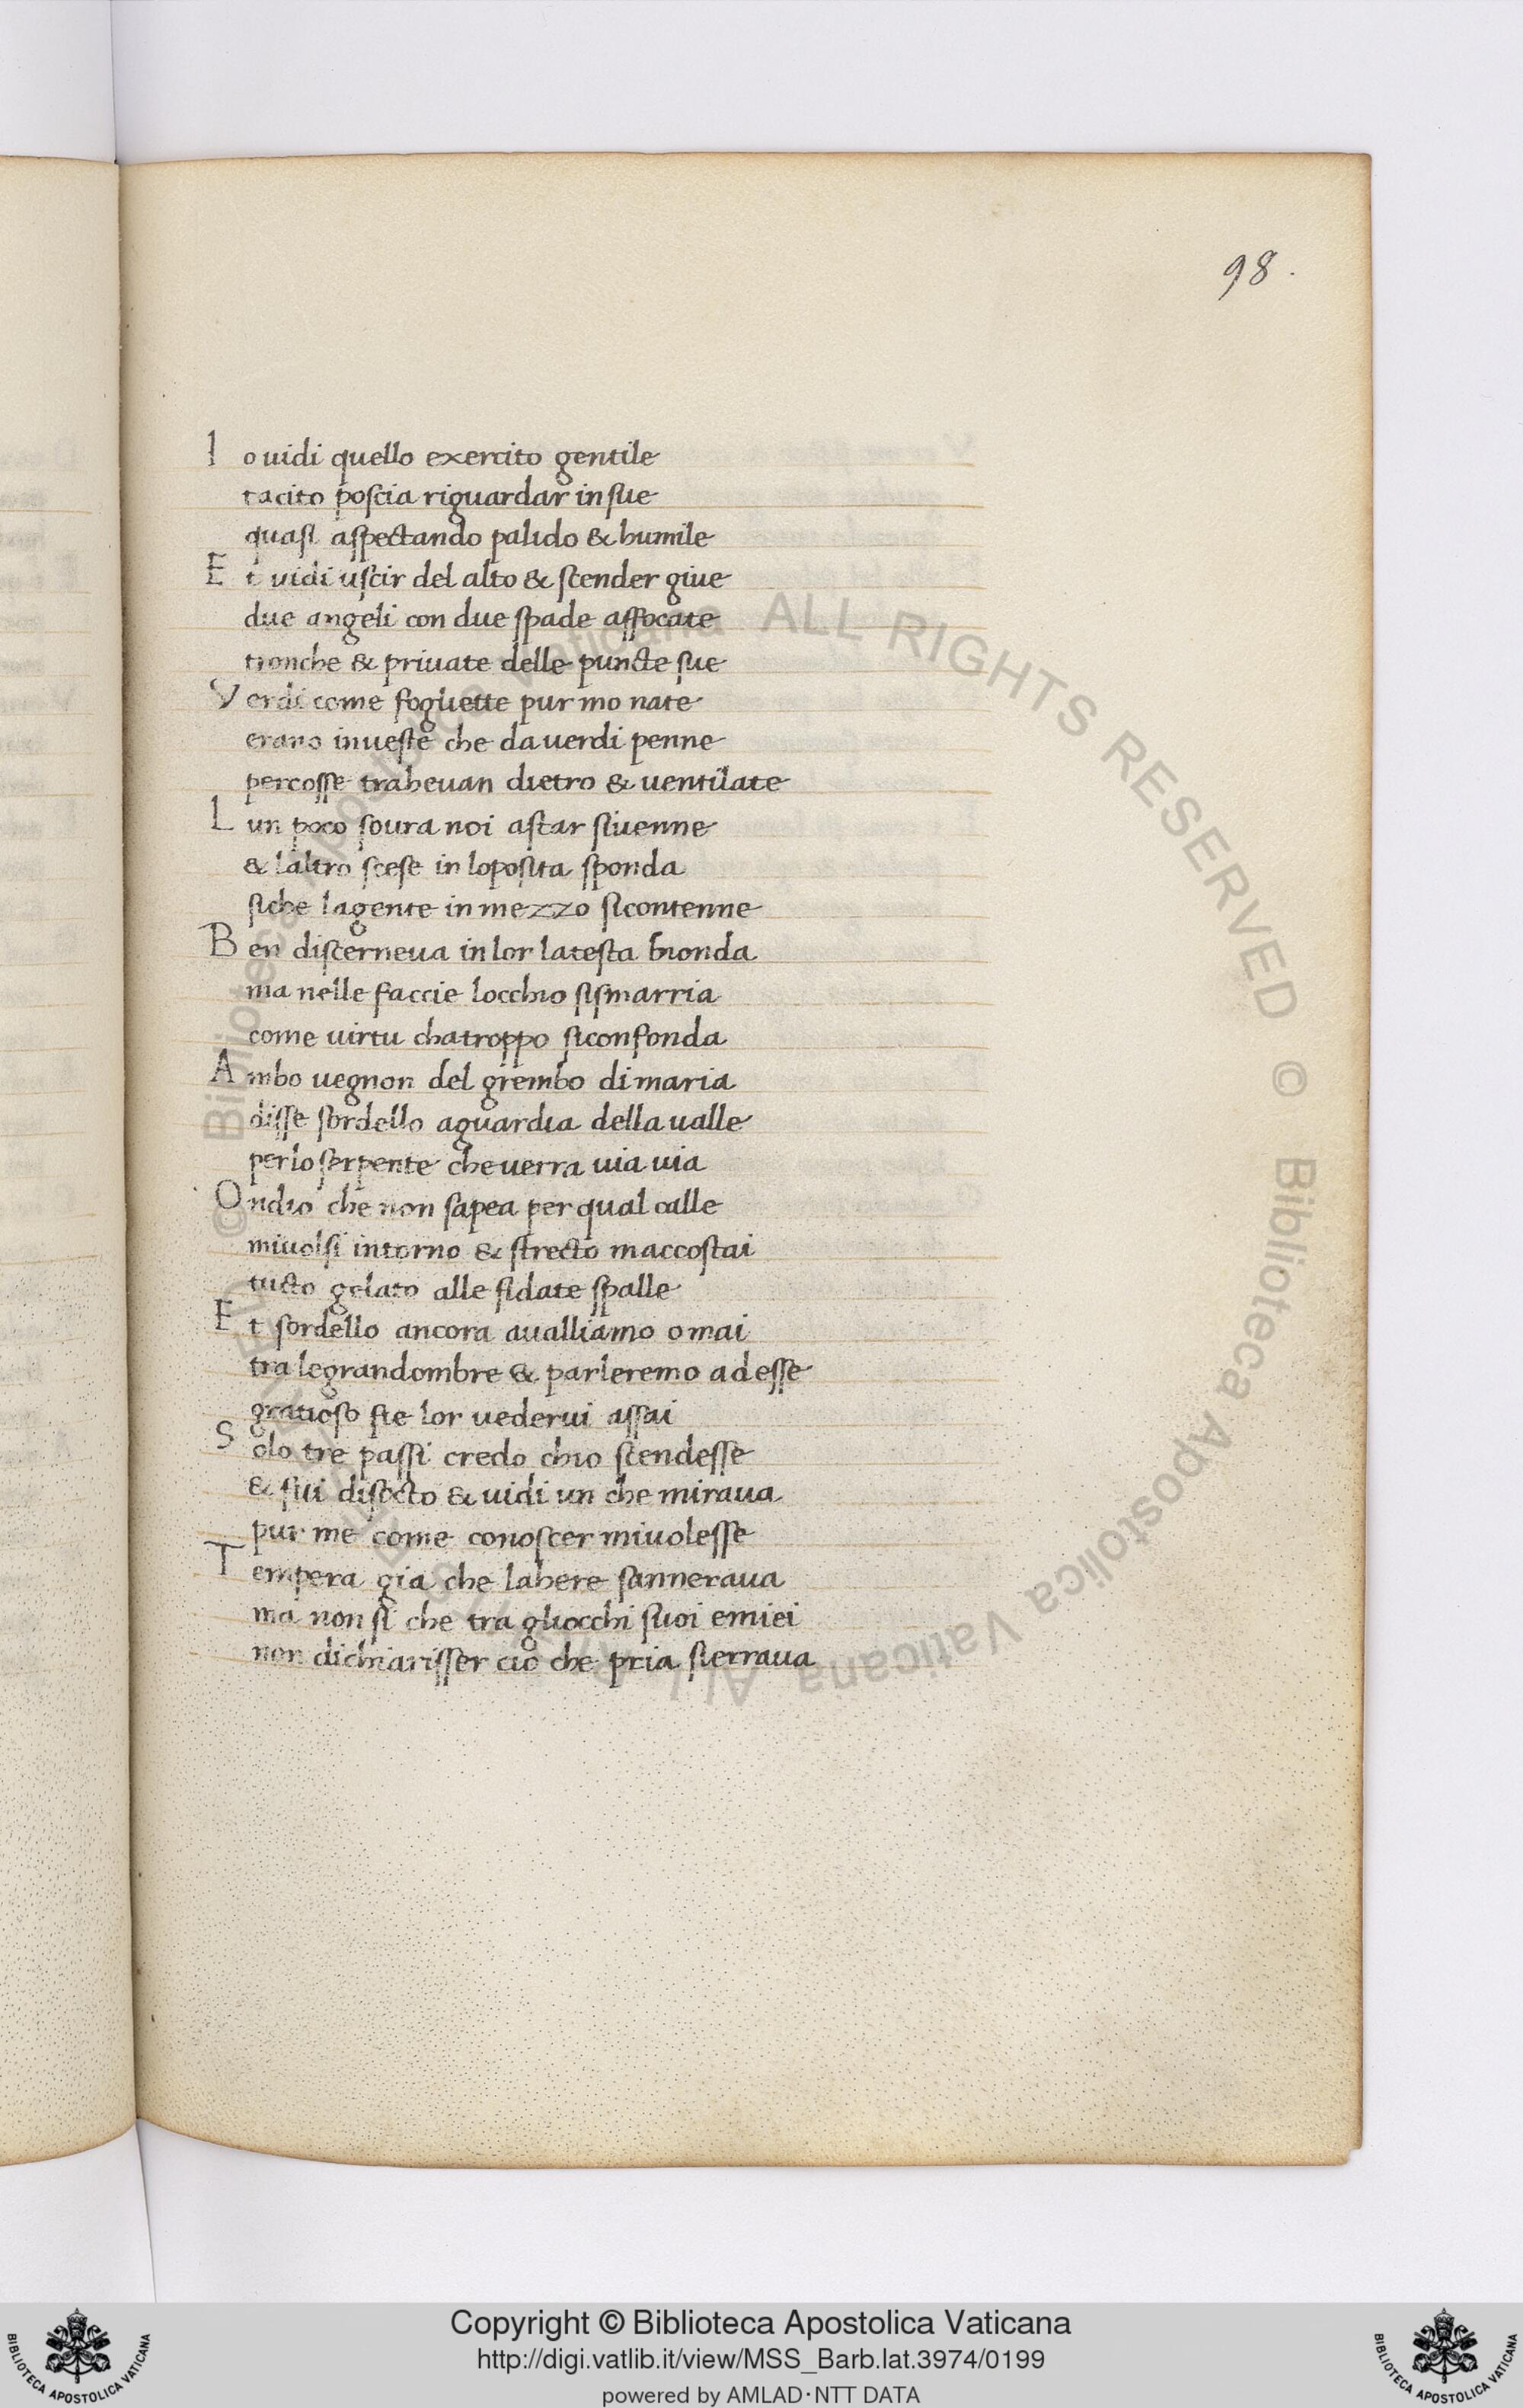 98.
Io uidi quello exercito gentile
tacito poscia riguardar in sue
quasi aspectando palido & humile
Et uidi uscir del alto & scender giue
due angeli con due spade affocate
tronche & priuate delle puncte sue
Verdi come fogliette pur mo nate
erano in ueste che da uerdi penne
percosse traheuan dietro & uentilate
Lun poco soura noi astar siuenne
& laltro scese in loposita sponda
siche lagente in mezzo sicontenne
Ben discerneua in lor latesta bionda
ma nelle faccie locchio sismarria
come uirtu chatroppo siconfonda
Ambo uegnon del grembo di maria
disse sordello aguardia della ualle
perlo serpente cheuerra uia uia
Ondio che non sapea per qual calle
miuolsi intorno & strecto maccostai
tucto gelato alle fidate spalle
Et sordello ancora aualliamo omai
tra legrandombre & parleremo adesse
gratioso fie lor uederui assai
Solo tre passi credo chio scendesse
& fui disocto & uidi un che miraua
pur me come conoscer miuolesse
Tempera gia che lahere sanneraua
ma non si che tra gliocchi suoi emiei
non dichiarisser cio che pria sierraua
© Biblioteca Apostolica Vaticana ALL RIGHTS RESERVED © Biblioteca Apostolica Vaticana ALL RIGHTS RESERVED
Copyright © Biblioteca Apostolica Vaticana
http://digi.vatlib.it/view/MSS_Barb.lat.3974/0199
powered by AMLAD·NTT DATA
BIBLIOTECA APOSTOLICA VATICANA
BIBLIOTECA APOSTOLICA VATICANA